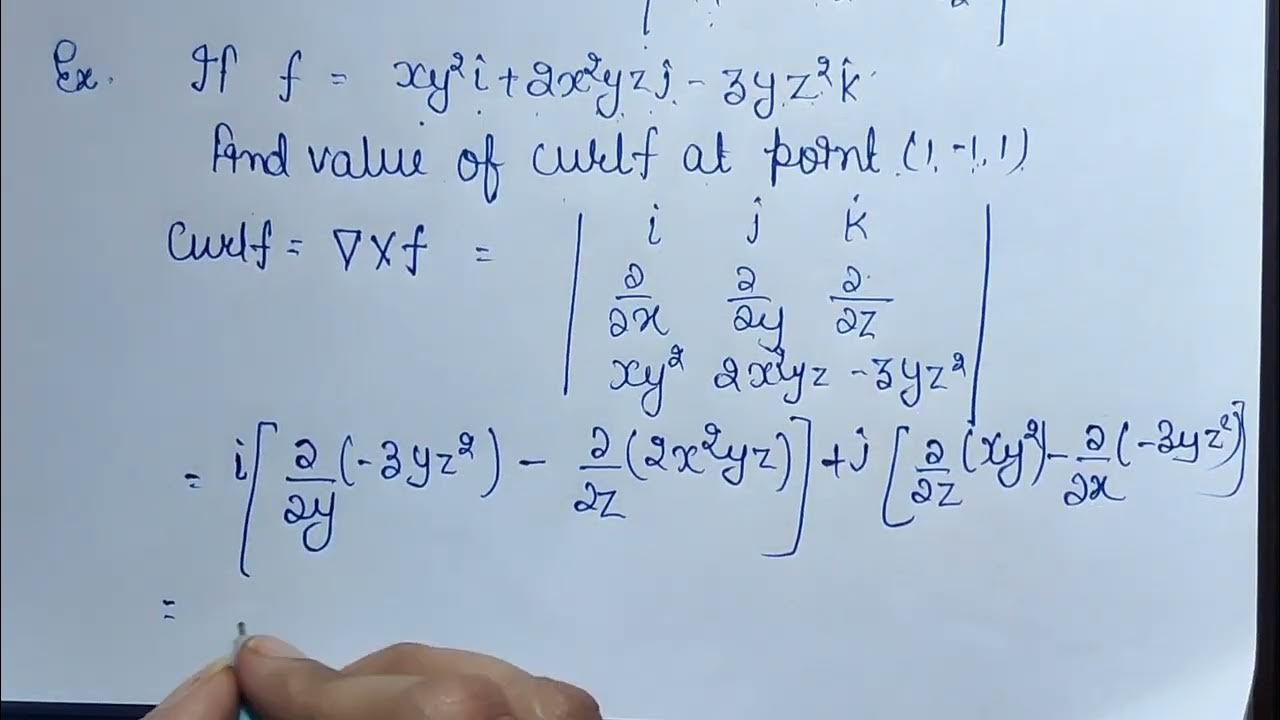 Ex. If f = xy²i + 2x²yzj - 3yz²k
find value of curlf at point (1, -1, 1)
Curlf = ∇×f = | i j k
∂/∂x ∂/∂y ∂/∂z
xy² 2x²yz -3yz² |
= i[∂/∂y(-3yz²) - ∂/∂z(2x²yz)] + j[∂/∂z(xy²) - ∂/∂x(-3yz²)]
=